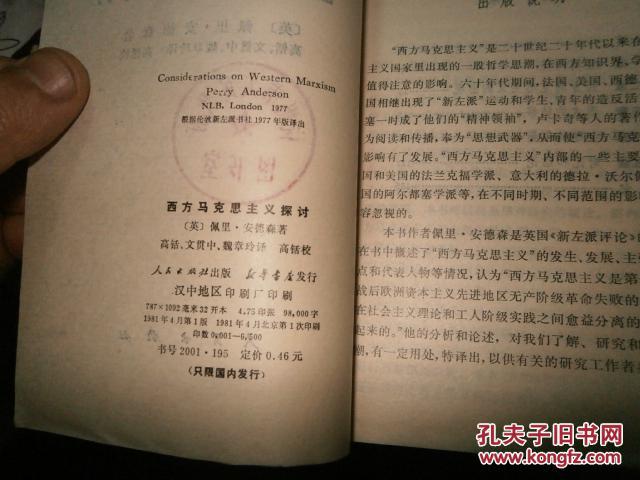 Considerations on Western Marxism
Perry Anderson
NLB, London 1977
根据伦敦新左派书社1977年版译出
西方马克思主义探讨
〔英〕佩里·安德森著
高铦、文贯中、魏章玲译 高铦校
人民出版社出版 新华书店发行
汉中地区印刷厂印刷
787×1092毫米32开本 4.75印张 98,000字
1981年4月第1版 1981年4月北京第1次印刷
印数0,001—6,500
书号2001·195 定价0.46元
(只限国内发行)
出版说明
“西方马克思主义”是二十世纪二十年代以来在
主义国家里出现的一股哲学思潮,在西方知识界、学
值得注意的影响。六十年代期间,法国、美国、西德
国相继出现了“新左派”运动和学生、青年的造反活
塞一时成了他们的“精神领袖”,卢卡奇等人的著作
为阅读和传播,奉为“思想武器”,从而使“西方马克
影响有了发展。“西方马克思主义”内部的一些主要
国和美国的法兰克福学派、意大利的德拉·沃尔佩
国的阿尔都塞学派等,在不同时期、不同范围的影
容忽视的。
本书作者佩里·安德森是英国《新左派评论》
在书中概述了“西方马克思主义”的发生、发展、主
点和代表人物等情况,认为“西方马克思主义是第
战后欧洲资本主义先进地区无产阶级革命失败的
在社会主义理论和工人阶级实践之间愈益分离的
起来的。”他的分析和论述,对我们了解、研究和
潮,有一定用处,特译出,以供有关的研究工作者
孔夫子旧书网
www.kongfz.com